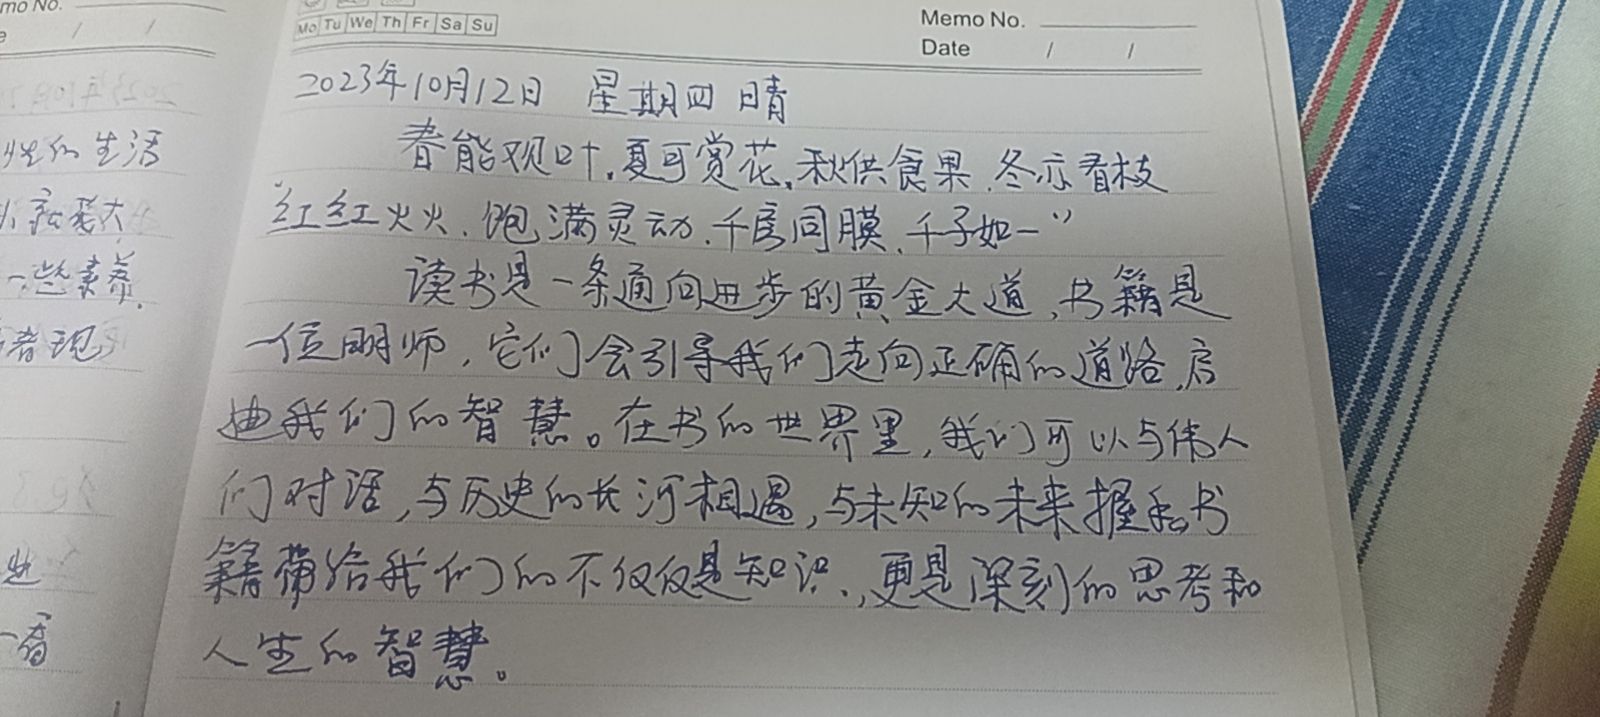 mo No.
Mo Tu We Th Fr Sa Su
Memo No.
Date / /
2023年10月12日 星期四 晴
春能观叶,夏可赏花,秋供食果,冬亦看枝
"红红火火,饱满灵动,千房同膜,千子如一"
读书是一条通向进步的黄金大道,书籍是
一位明师,它们会引导我们走向正确的道路,启
迪我们的智慧。在书的世界里,我们可以与伟人
们对话,与历史的长河相遇,与未知的未来握手书
籍带给我们的不仅仅是知识,更是深刻的思考和
人生的智慧。
的生活
一些素养.
些
一看